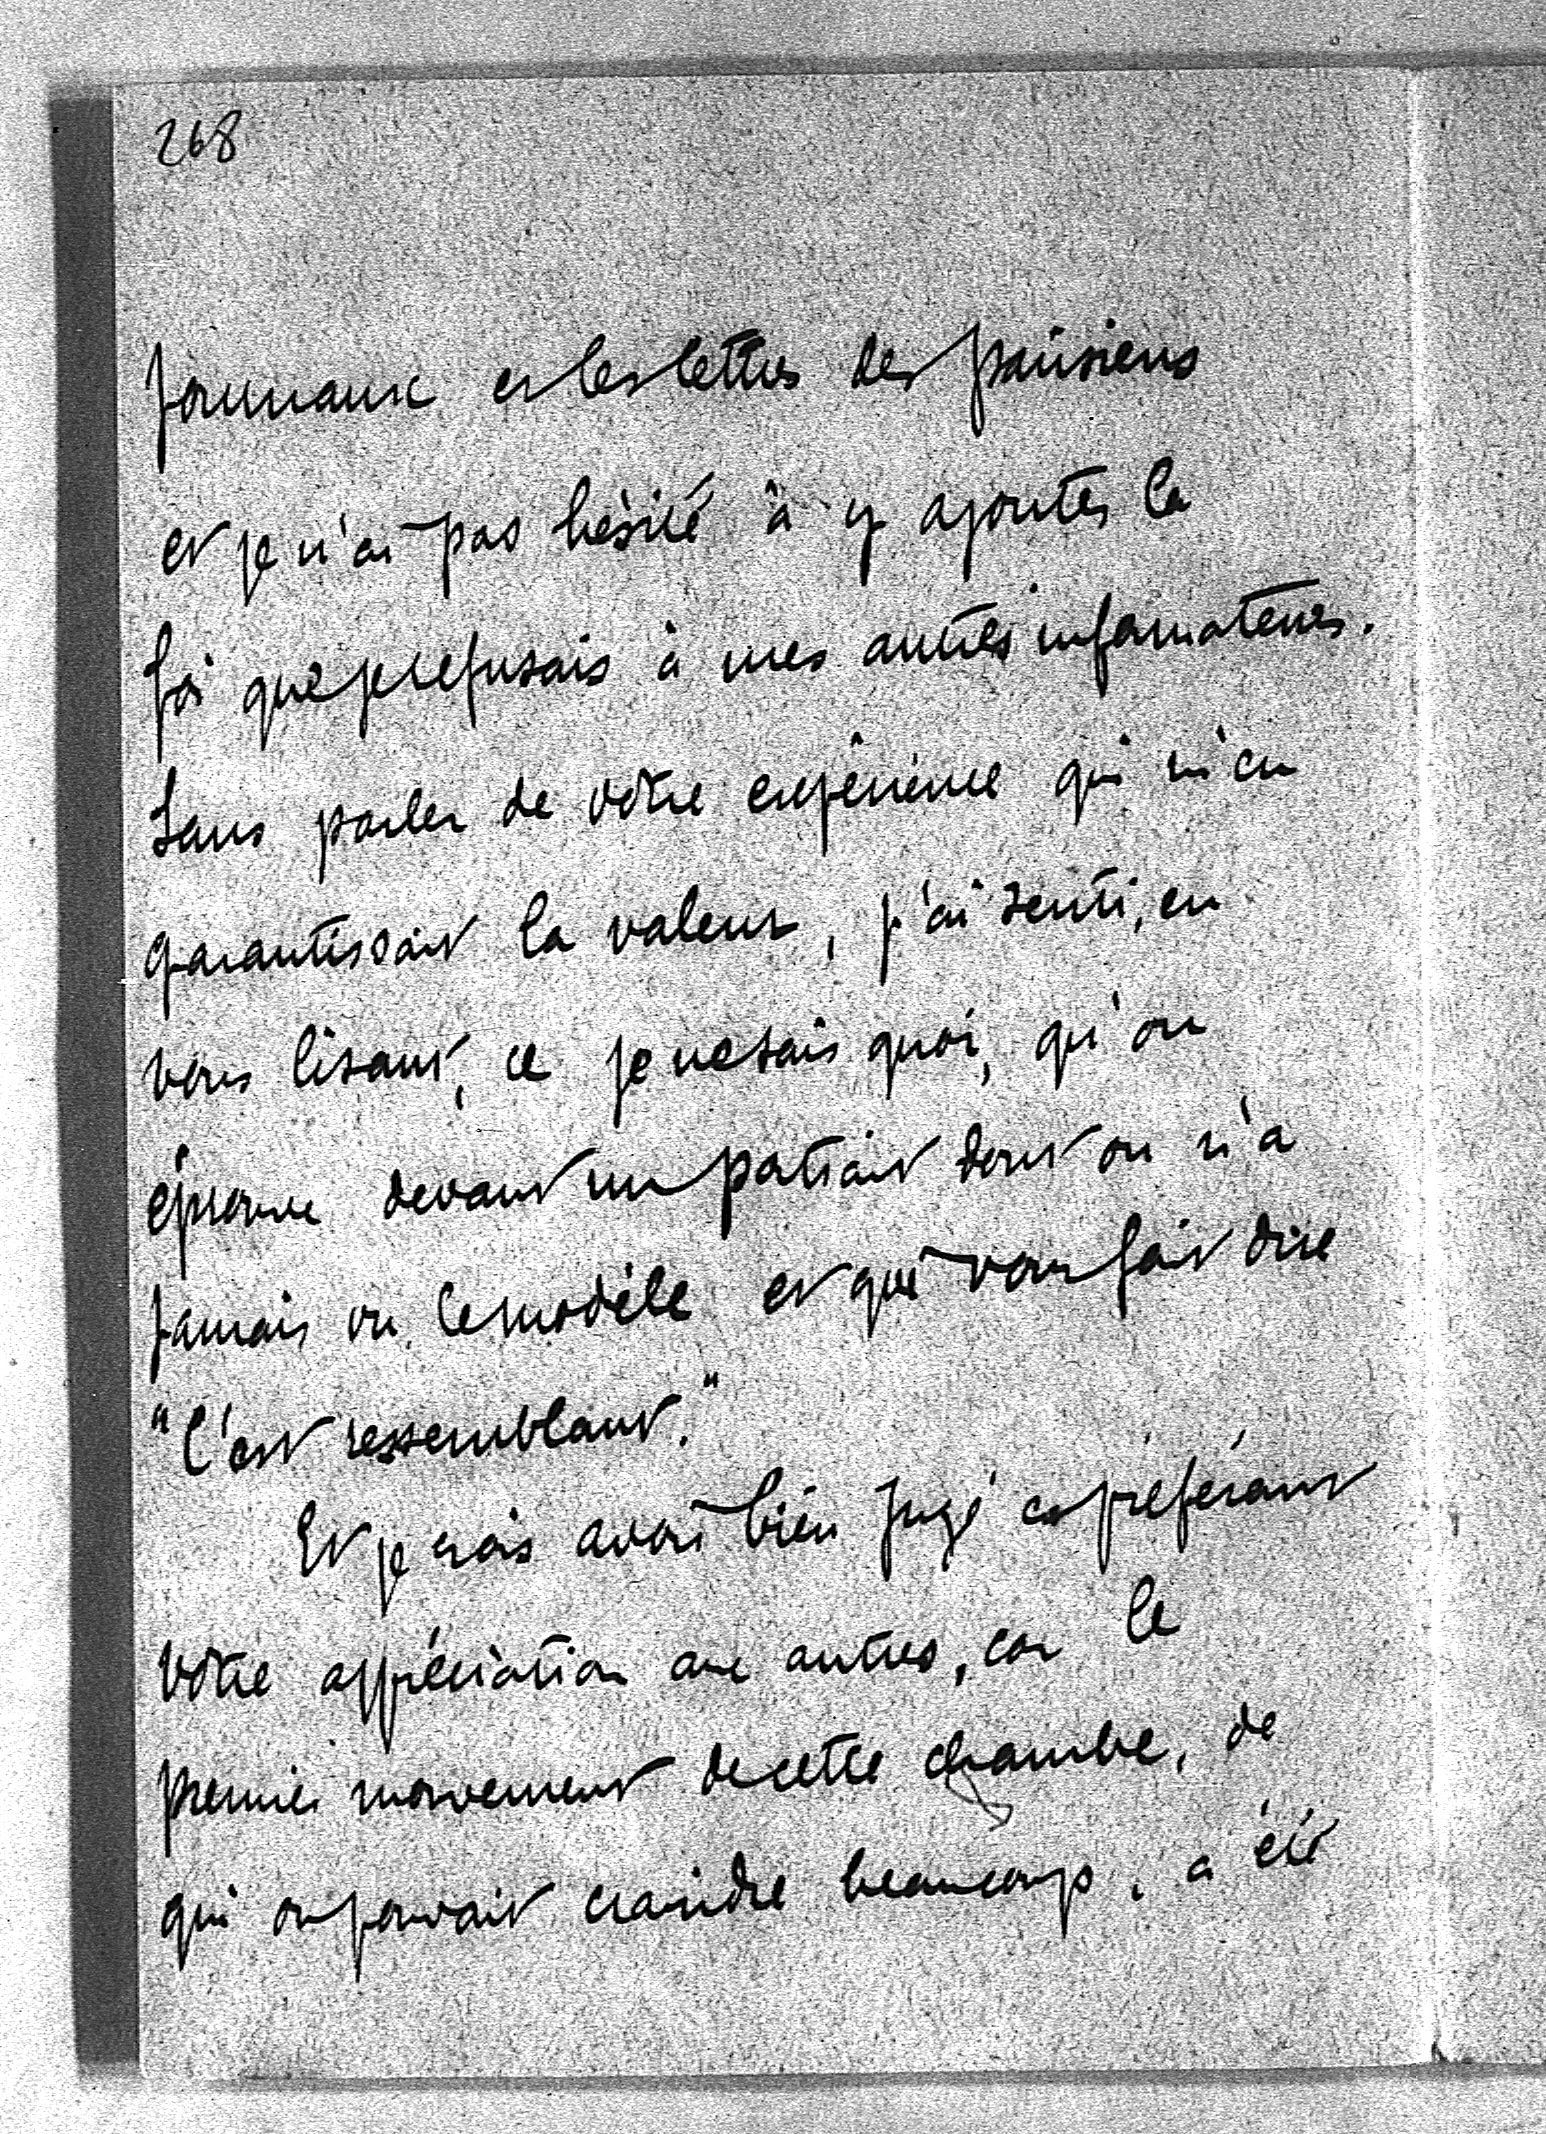 268
journaux et les lettres des parisiens
et je n'ai pas hésité à y ajouter la
foi que je refusais à mes autres informateurs.
Sans parler de votre expérience qui m'en
garantissait la valeur, j'ai senti, en
vous lisant, ce je ne sais quoi, qu'on
éprouve devant un portrait dont on n'a
jamais vu le modèle et qui vous fait dire
"C'est ressemblant."
Et je crois avoir bien jugé en préférant
votre appréciation aux autres, car le
premier mouvement de cette chambre, de
qui on pouvait craindre beaucoup, a été